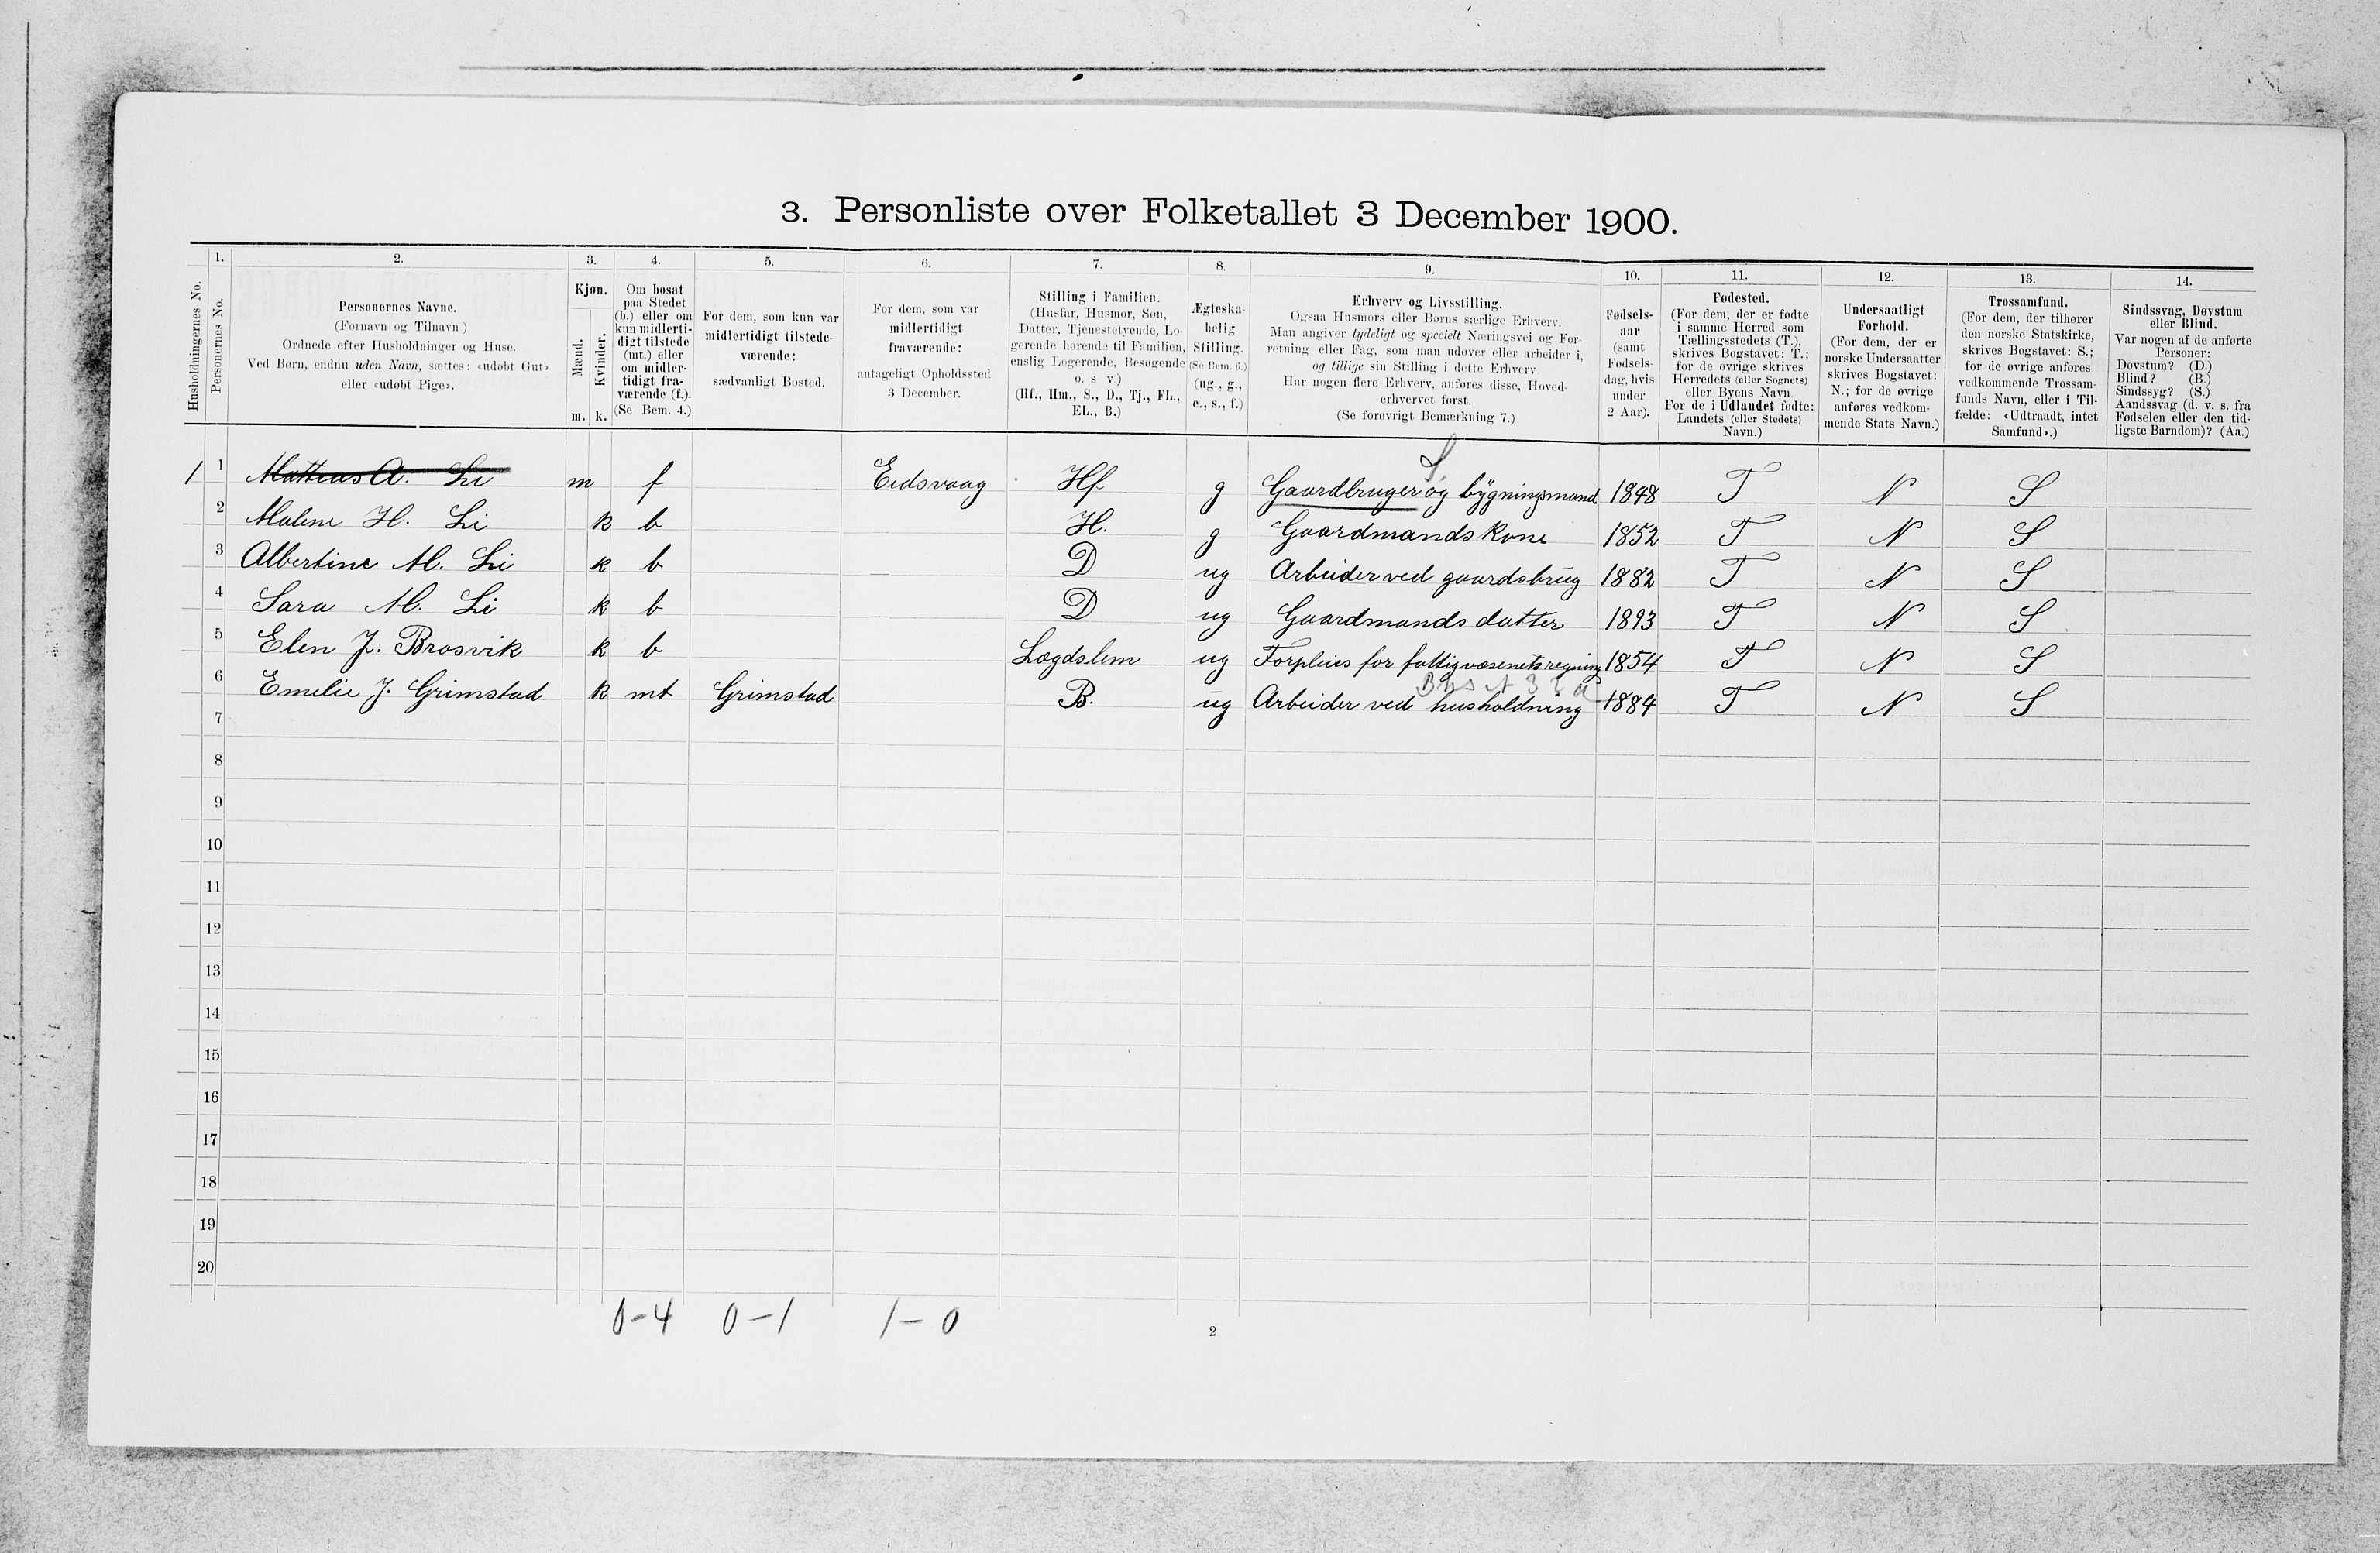 3. Personliste over Folketallet 3 December 1900.
1. 2. 3. 4. 5. 6. 7. 8. 9. 10. 11. 12. 13. 14.
Husholdningernes No.
Personernes No.
Personernes Navne.
(Fornavn og Tilnavn)
Ordnede efter Husholdninger og Huse.
Ved Børn, endnu uden Navn, sættes: «udøbt Gut»
eller «udøbt Pige».
Kjøn.
Mænd.
Kvinder.
m. k.
Om bosat
paa Stedet
(b.) eller om
kun midlerti-
digt tilstede
(mt.) eller
om midler-
tidigt fra-
værende (f.).
(Se Bem. 4.)
For dem, som kun var
midlertidigt tilstede-
værende:
sædvanligt Bosted.
For dem, som var
midlertidigt
fraværende:
antageligt Opholdssted
3 December.
Stilling i Familien.
(Husfar, Husmor, Søn,
Datter, Tjenestetyende, Lo-
gerende hørende til Familien,
enslig Logerende, Besøgende
o. s v.)
(Hf., Hm., S., D., Tj., FL.,
EL., B.)
Ægteska-
belig
Stilling.
(Se Bem. 6.)
(ug., g.,
e., s., f.)
Erhverv og Livsstilling.
Ogsaa Husmors eller Børns særlige Erhverv.
Man angiver tydeligt og specielt Næringsvei og For-
retning eller Fag, som man udøver eller arbeider i,
og tillige sin Stilling i dette Erhverv
Har nogen flere Erhverv, anføres disse, Hoved-
erhvervet først.
(Se forøvrigt Bemærkning 7.)
Fødsels-
aar
(samt
Fødsels-
dag, hvis
under
2 Aar).
Fødested.
(For dem, der er fødte
i samme Herred som
Tællingsstedets (T.),
skrives Bogstavet: T.;
for de øvrige skrives
Herredets (eller Sognets)
eller Byens Navn.
For de i Udlandet fødte:
Landets (eller Stedets)
Navn.)
Undersaatligt
Forhold.
(For dem, der er
norske Undersaatter
skrives Bogstavet:
N.; for de øvrige
anføres vedkom-
mende Stats Navn.)
Trossamfund.
(For dem, der tilhører
den norske Statskirke,
skrives Bogstavet: S.;
for de øvrige anføres
vedkommende Trossam-
funds Navn, eller i Til-
fælde: «Udtraadt, intet
Samfund».)
Sindssvag, Døvstum
eller Blind.
Var nogen af de anførte
Personer:
Døvstum? (D.)
Blind? (B.)
Sindssyg? (S.)
Aandssvag (d. v. s. fra
Fødselen eller den tid-
ligste Barndom)? (Aa.)
1 1 Mattias A. Li m f Eidsvaag Hf g Gaardbruger og bygningsmand 1848 T N S
2 Maline H. Li k b H. g Gaardmands kone 1852 T N S
3 Albertine M. Li k b D ug Arbeider ved gaardsbrug 1882 T N S
4 Sara M. Li k b D ug Gaardmands datter 1893 T N S
5 Elen J. Brosvik k b Lægdslem ug Forpleies for fattigvæsenets regning 1854 T N S
6 Emelie J. Grimstad k mt Grimstad B. ug Arbeider ved husholdning 1884 T N S
7
8
9
10
11
12
13
14
15
16
17
18
19
20
0-4 0-1 1-0
2